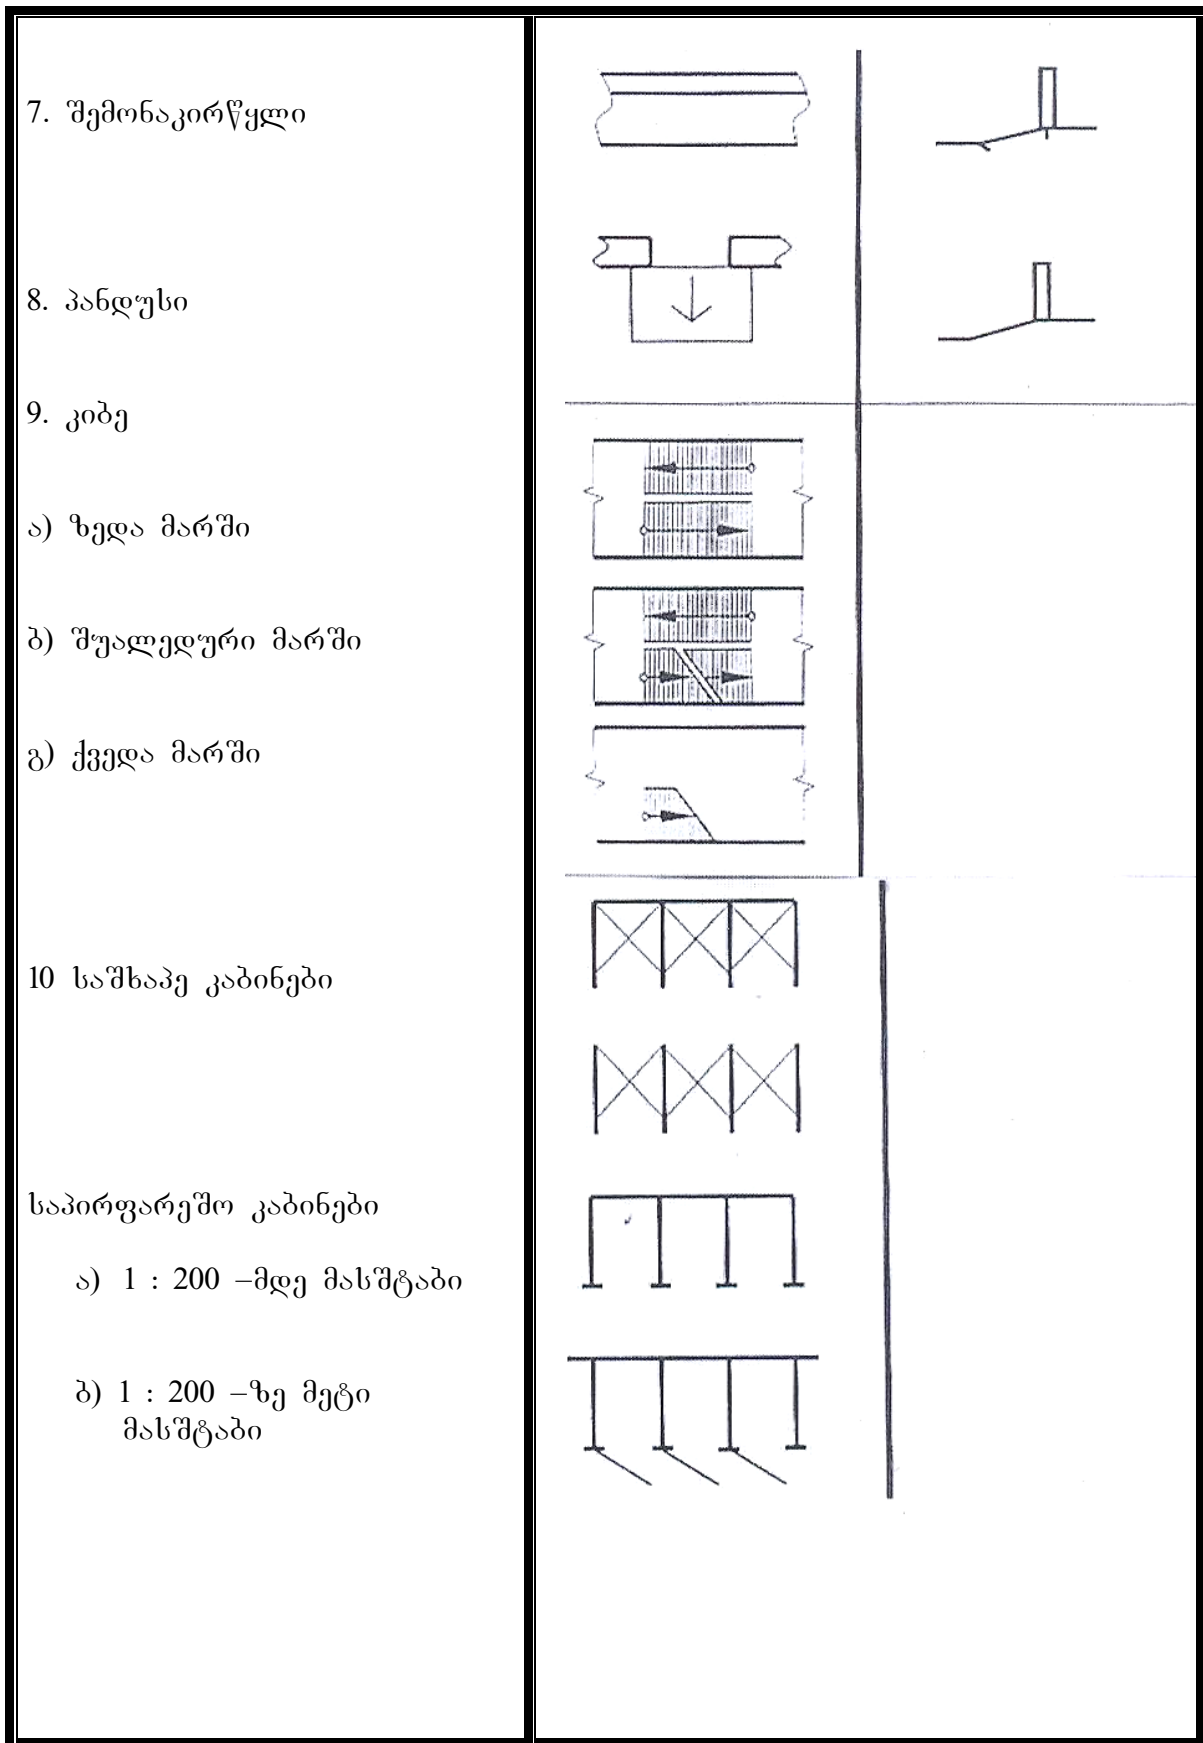 7. შემონაკირწყლი
8. პანდუსი
9. კიბე
ა) ზედა მარში
ბ) შუალედური მარში
გ) ქვედა მარში
10 საშხაპე კაბინები
საპირფარეშო კაბინები
ა) 1 : 200 –მდე მასშტაბი
ბ) 1 : 200 –ზე მეტი
მასშტაბი